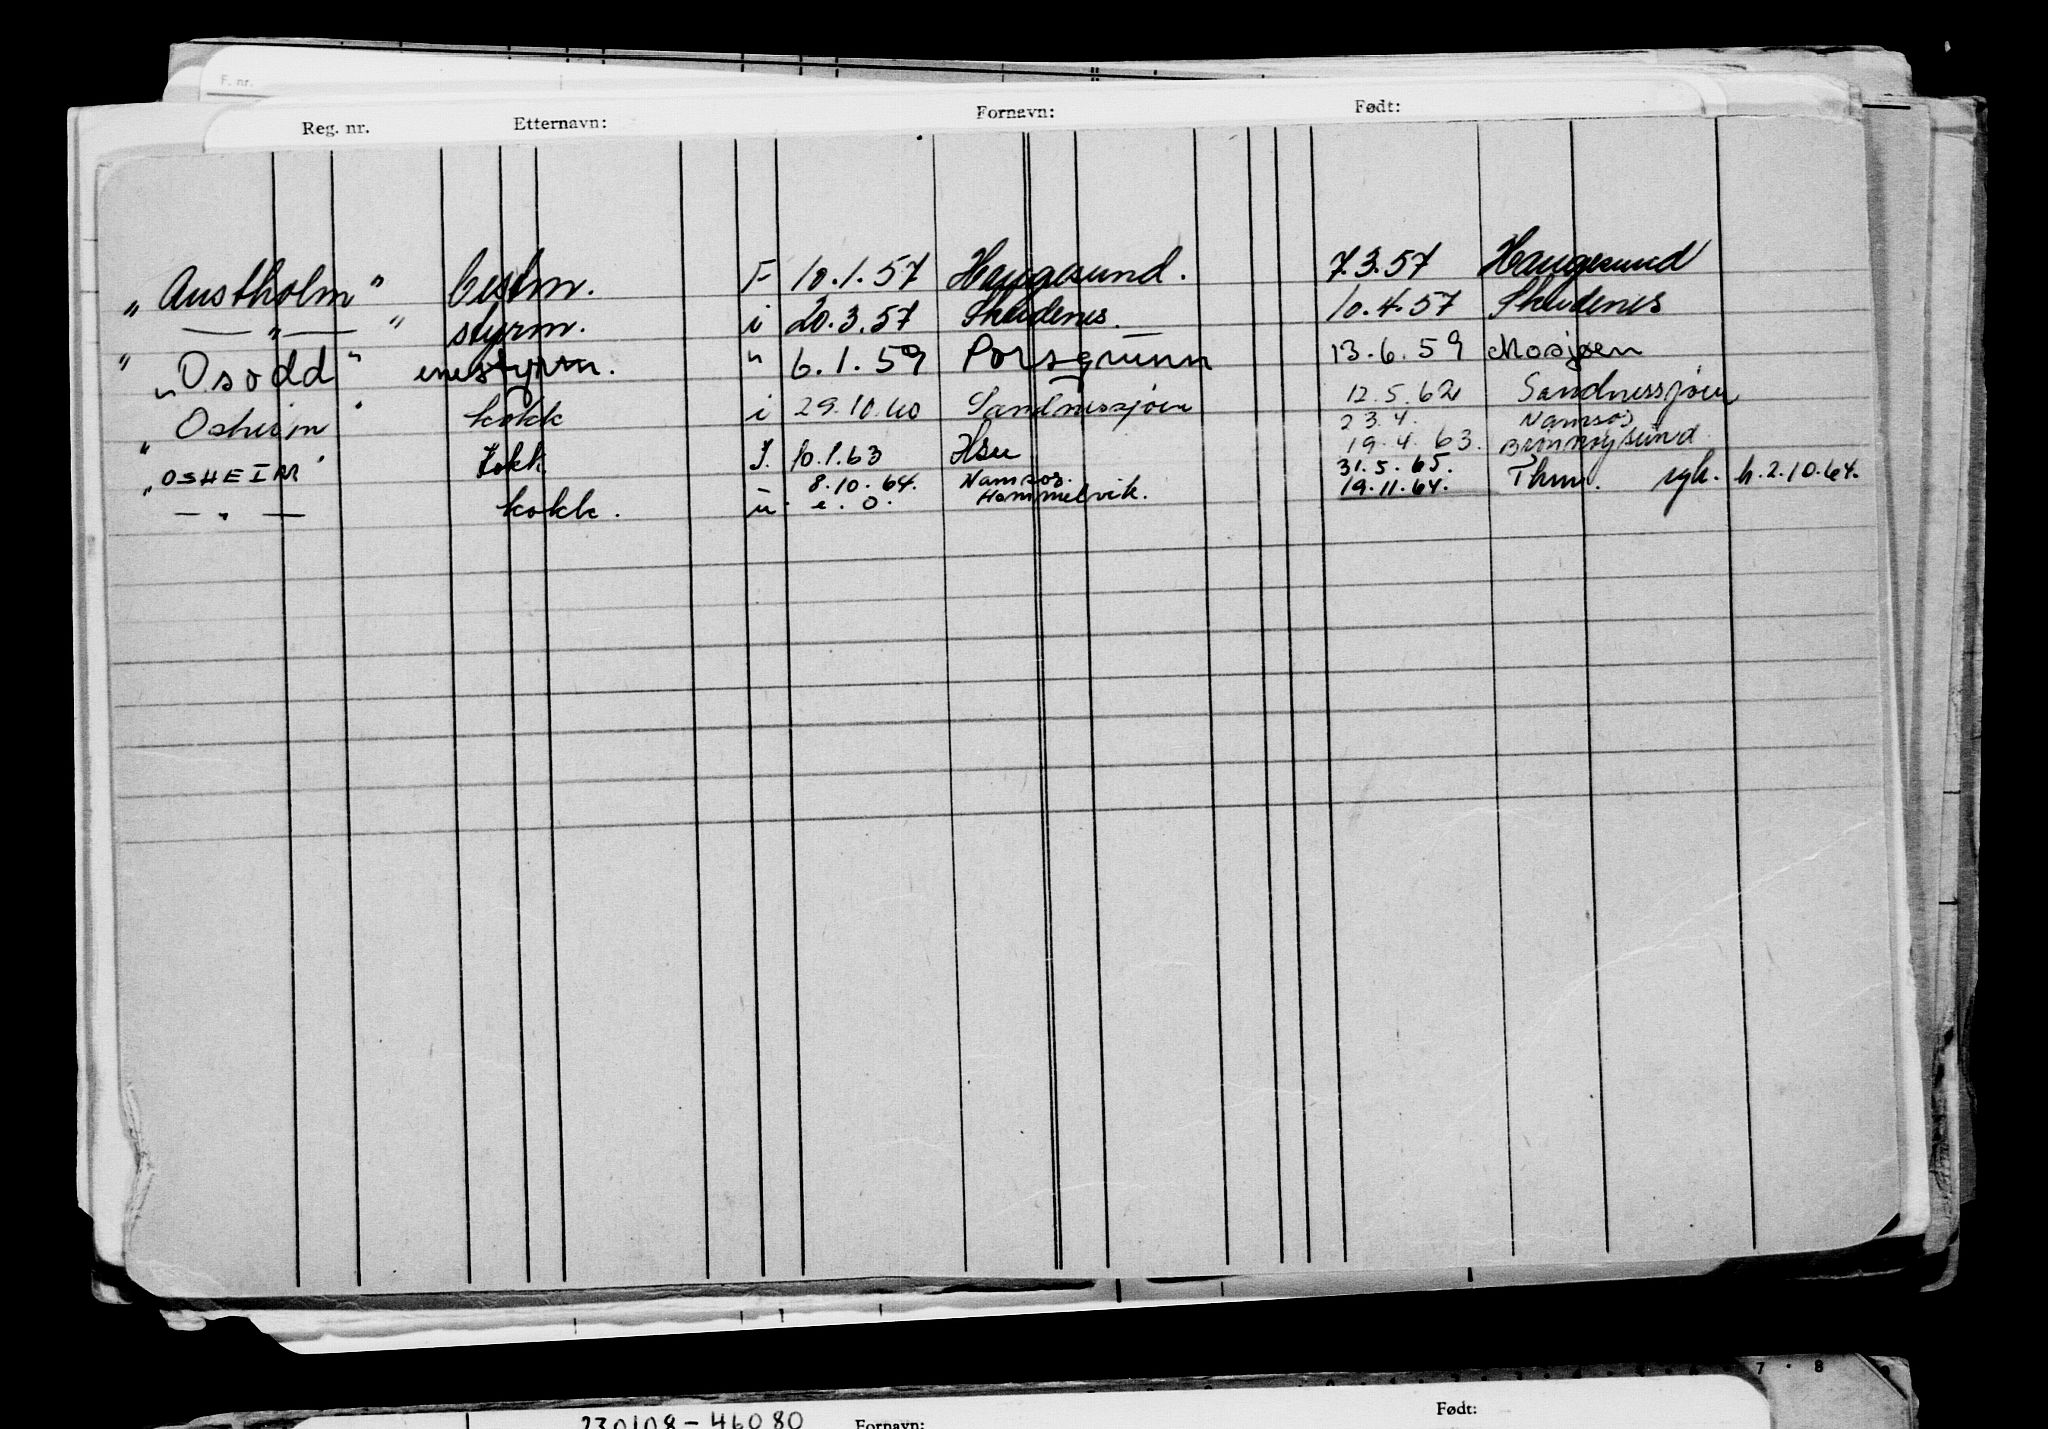 F. nr.
Reg. nr. Etternavn: Fornavn: Født:
„Austholm" bestm. F 10.1.57 Haugesund. 7.3.57 Haugesund
— „ — " styrm. i 20.3.57 Skudenes. 10.4.57 Skudenes
" „Osodd" enestyrm. " 6.1.59 Porsgrunn 13.6.59 Mosjøen
Osheim" kokk i 29.10.60 Sandnessjøen 12.5.62 Sandnessjøen
23.4. Namsos
„OSHEIM" kokk I. 10.1.63 Hsu 19.4.63. Brønnøysund
8.10.64. Namsos. 31.5.65.
— " — kokk. u. e.o. Hommelvik. 19.11.64. Thm. syk. h.2.10.64.
7 8
230108-46080 Fornavn: Født: